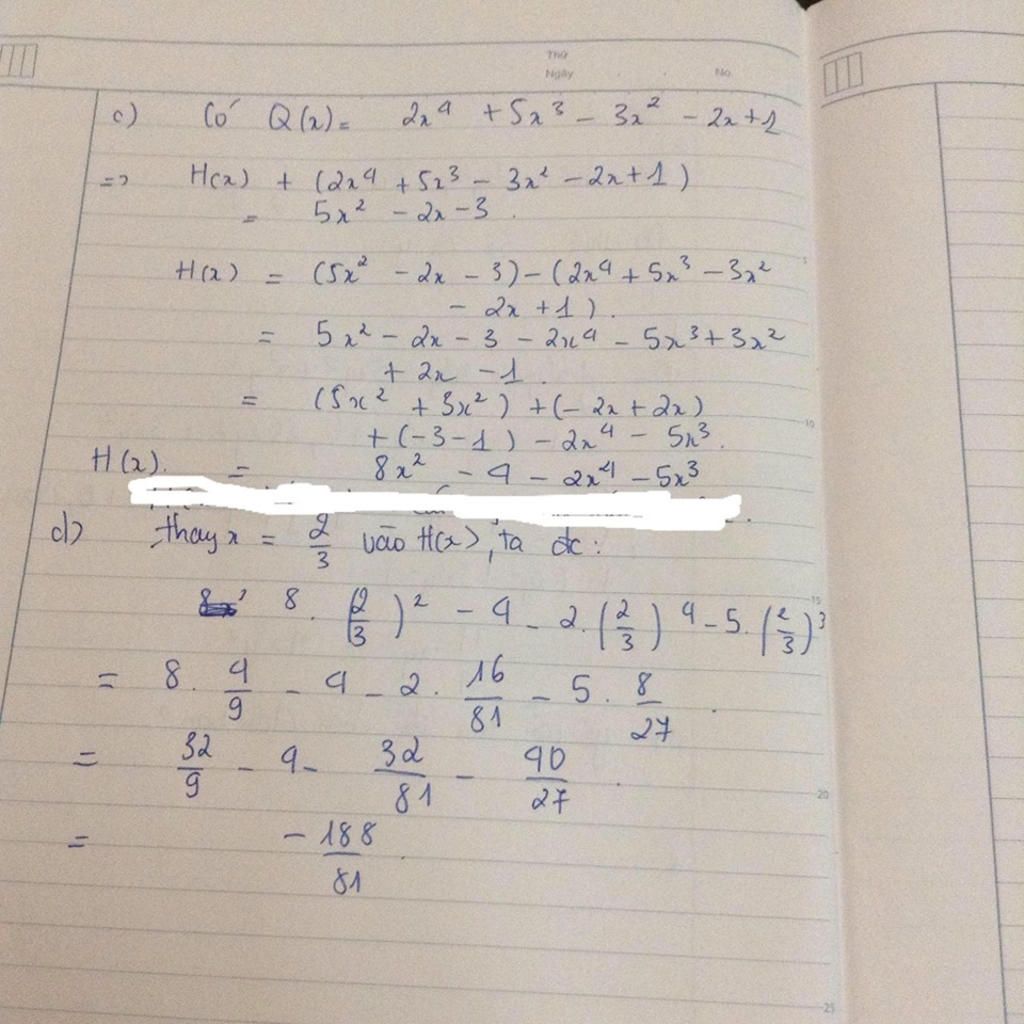 Thứ
Ngày No.
c) Có Q(x) = 2x⁴ + 5x³ - 3x² - 2x + 1
=> H(x) + (2x⁴ + 5x³ - 3x² - 2x + 1)
= 5x² - 2x - 3.
H(x) = (5x² - 2x - 3) - (2x⁴ + 5x³ - 3x²
- 2x + 1).
= 5x² - 2x - 3 - 2x⁴ - 5x³ + 3x²
+ 2x - 1.
= (5x² + 3x²) + (- 2x + 2x)
+ (-3 - 1) - 2x⁴ - 5x³.
H(x). = 8x² - 4 - 2x⁴ - 5x³
d) thay x = 2/3 vào H(x), ta đc:
8 . (2/3)² - 4 - 2. (2/3)⁴ - 5. (2/3)³
= 8. 4/9 - 4 - 2. 16/81 - 5. 8/27.
= 32/9 - 4 - 32/81 - 40/27.
= -188/81.
5
10
15
20
25